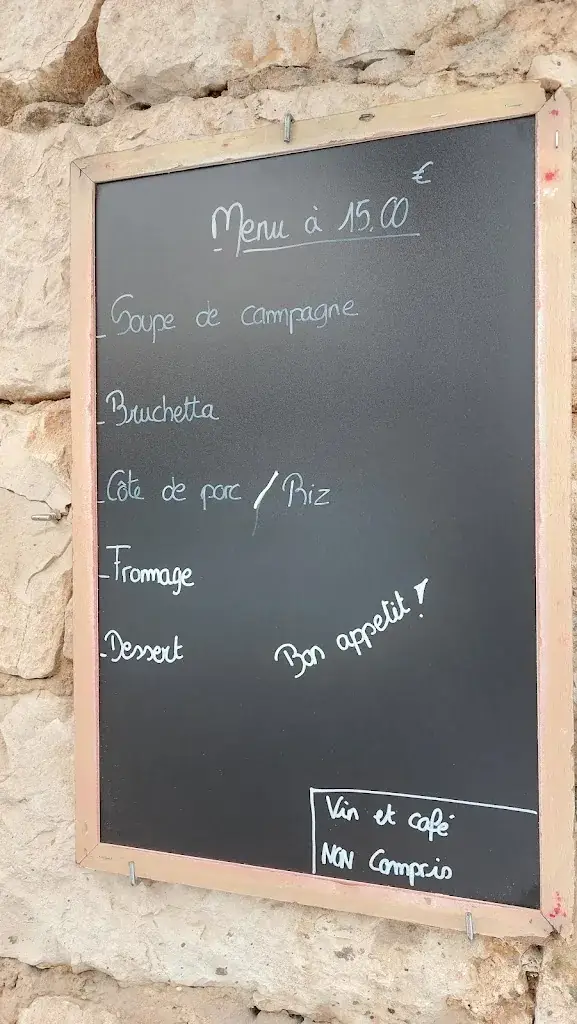 Menu à 15,00 €
- Soupe de campagne
- Bruchetta
- Côte de porc / Riz
- Fromage
- Dessert
Bon appetit !
Vin et café
NON Compris